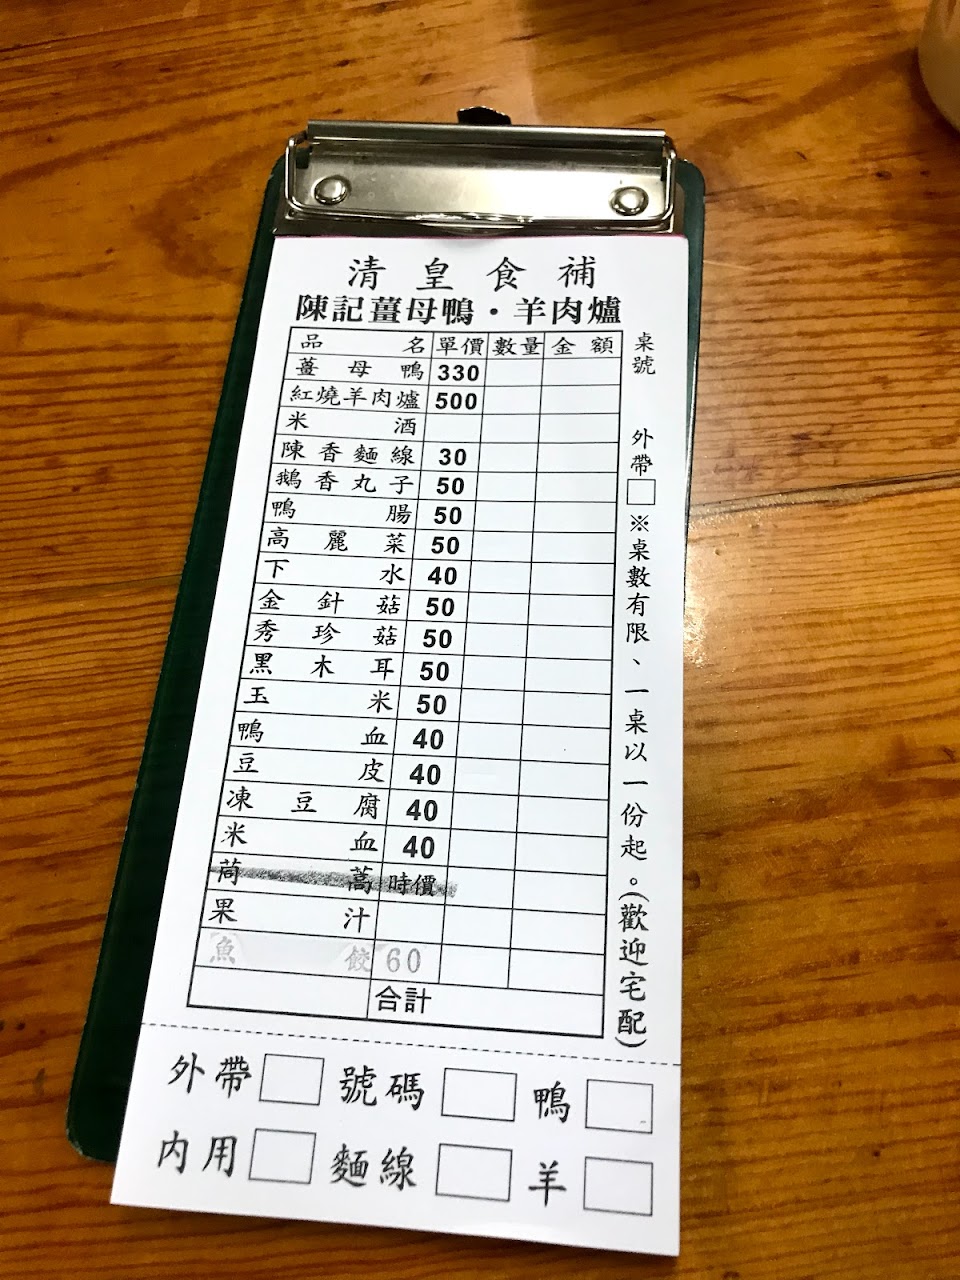 清皇食補
陳記薑母鴨·羊肉爐
品名 單價 數量 金額
薑母鴨 330
紅燒羊肉爐 500
米酒
陳香麵線 30
鵝香丸子 50
鴨腸 50
高麗菜 50
下水 40
金針菇 50
秀珍菇 50
黑木耳 50
玉米 50
鴨血 40
豆皮 40
凍豆腐 40
米血 40
茼蒿 時價
果汁
魚餃 60
合計
桌號
外帶
※桌數有限、一桌以一份起。(歡迎宅配)
外帶 號碼 鴨
內用 麵線 羊